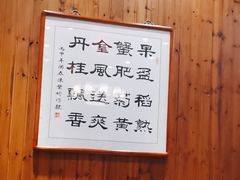 果盈稻熟
蟹肥菊黄
金風送爽
丹桂飄香
丙申年